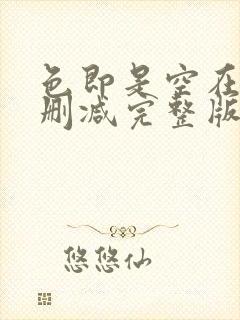 色即是空在
删减完整版
悠悠仙